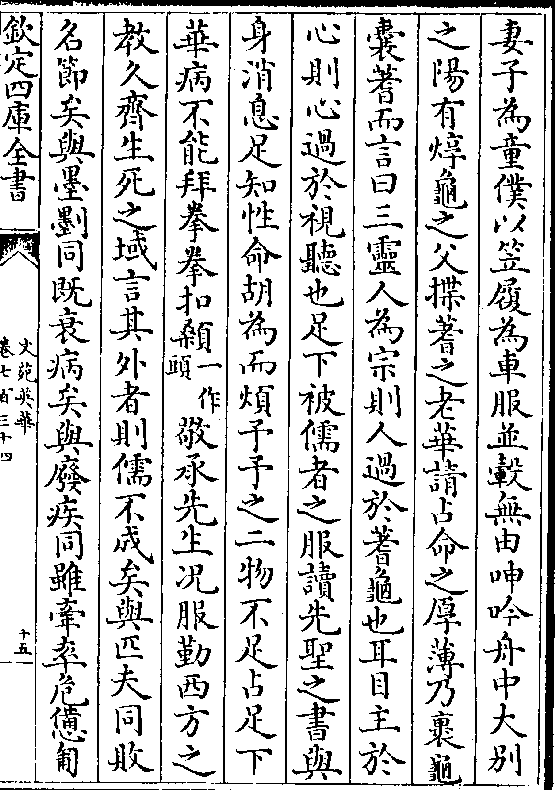 妻子為童僕以笠屨為車服並轂無由呻吟舟中大别
之陽有焞龜之父揲蓍之老華請占命之厚薄乃裹龜
囊蓍而言曰三靈人為宗則人過於蓍龜也耳目主於
心則心過於視聽也足下被儒者之服讀先聖之書與
身消息足知性命胡為而煩予予之二物不足占足下
華病不能拜拳拳扣顙一作頭敬承先生况服勤西方之
教久齊生死之域言其外者則儒不成矣與匹夫同敗
名節矣與墨劓同既衰病矣與廢疾同雖牽率危憊匍
欽定四庫全書
文苑英華
卷七百三十四
十五